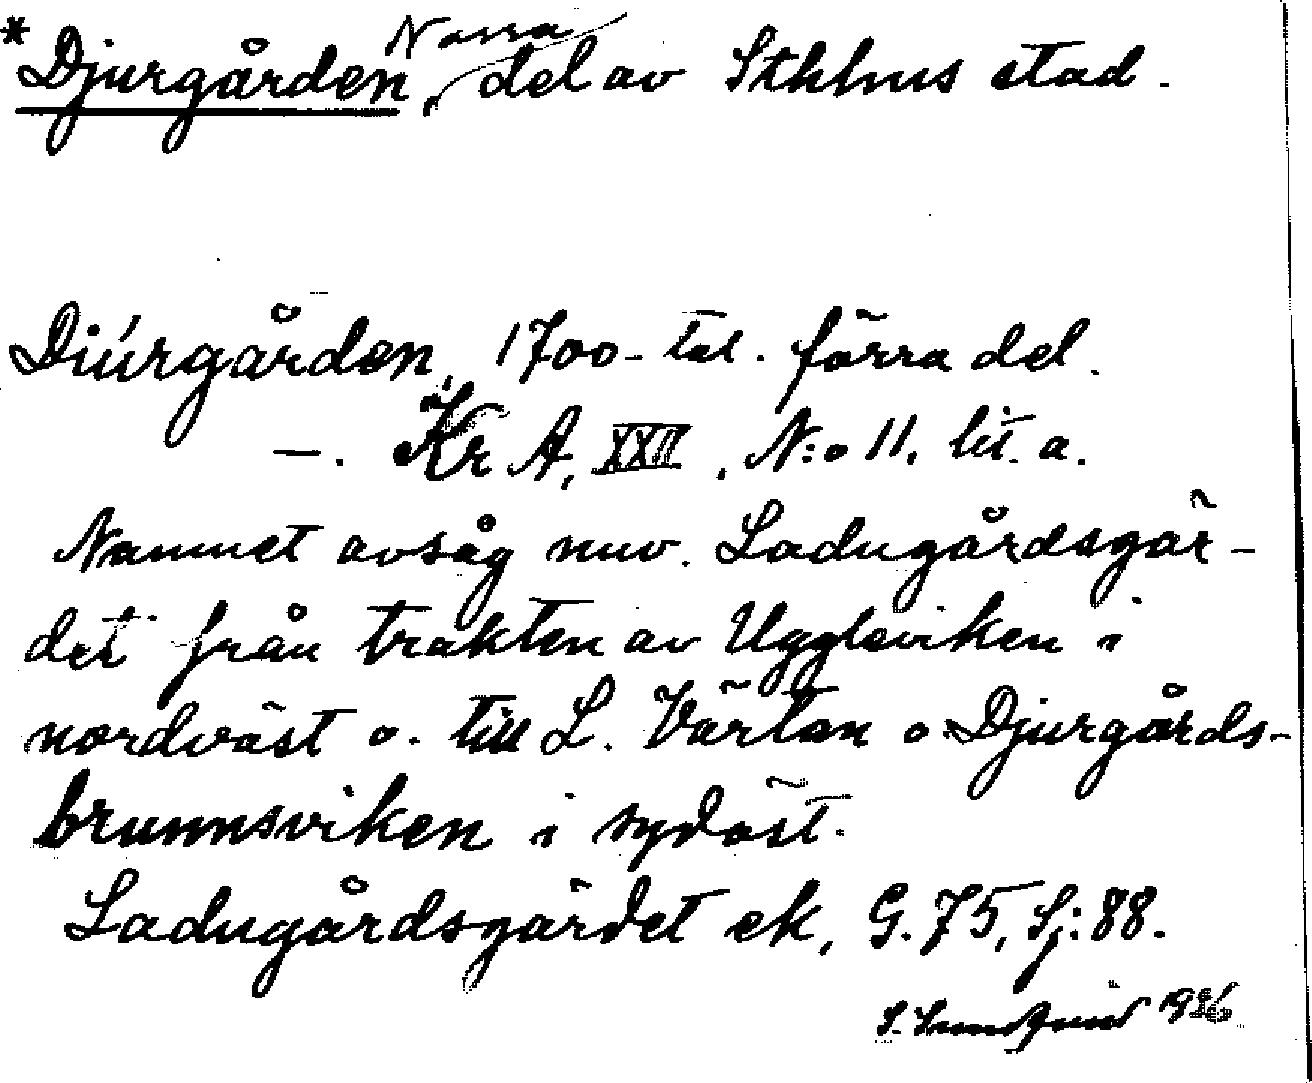 * Djurgården, Norra, del av Sthlms stad.
Diúrgården, 1700-tal. förra del.
—. Kr A, XXII, N:o 11. lit. a.
Namnet avsåg nuv. Ladugårdsgär-
det från trakten av Uggleviken i
nordväst o. till L. Värtan o Djurgårds-
brunnsviken i sydöst.
Ladugårdsgärdet ek, G. 75, Sj: 88.